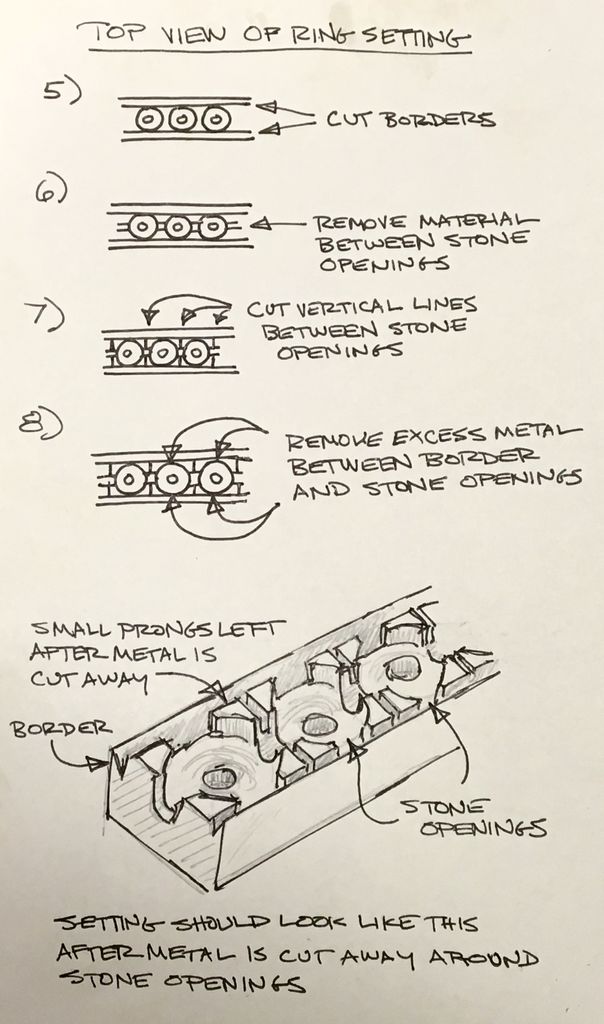 TOP VIEW OF RING SETTING
5)
CUT BORDERS
6)
REMOVE MATERIAL
BETWEEN STONE
OPENINGS
7)
CUT VERTICAL LINES
BETWEEN STONE
OPENINGS
8)
REMOVE EXCESS METAL
BETWEEN BORDER
AND STONE OPENINGS
SMALL PRONGS LEFT
AFTER METAL IS
CUT AWAY
BORDER
STONE
OPENINGS
SETTING SHOULD LOOK LIKE THIS
AFTER METAL IS CUT AWAY AROUND
STONE OPENINGS